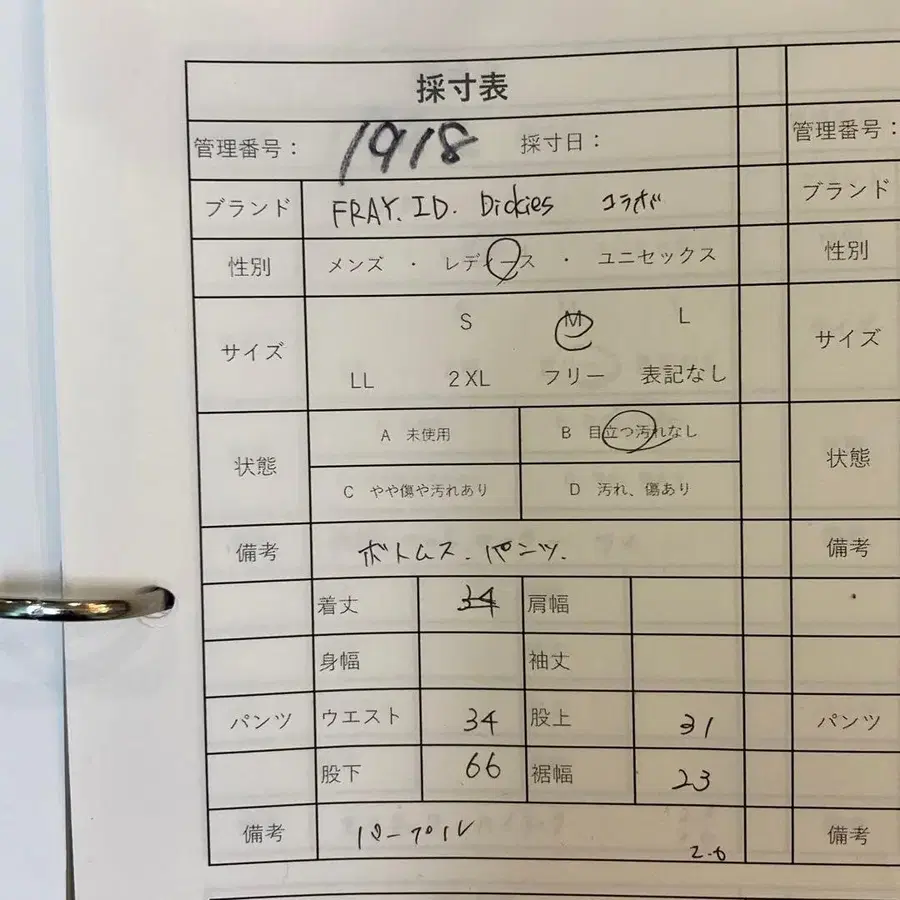 採寸表
管理番号： 1918 採寸日：
ブランド FRAY. ID. Dickies コラボ
性別 メンズ ・ レディース ・ ユニセックス
サイズ S M L
LL 2XL フリー 表記なし
状態 A 未使用 B 目立つ汚れなし
C やや傷や汚れあり D 汚れ、傷あり
備考 ボトムス. パンツ.
着丈 34 肩幅
身幅 袖丈
パンツ ウエスト 34 股上 31
股下 66 裾幅 23
備考 パープル
2.6
管理番号：
ブランド
性別
サイズ
状態
備考
パンツ
備考